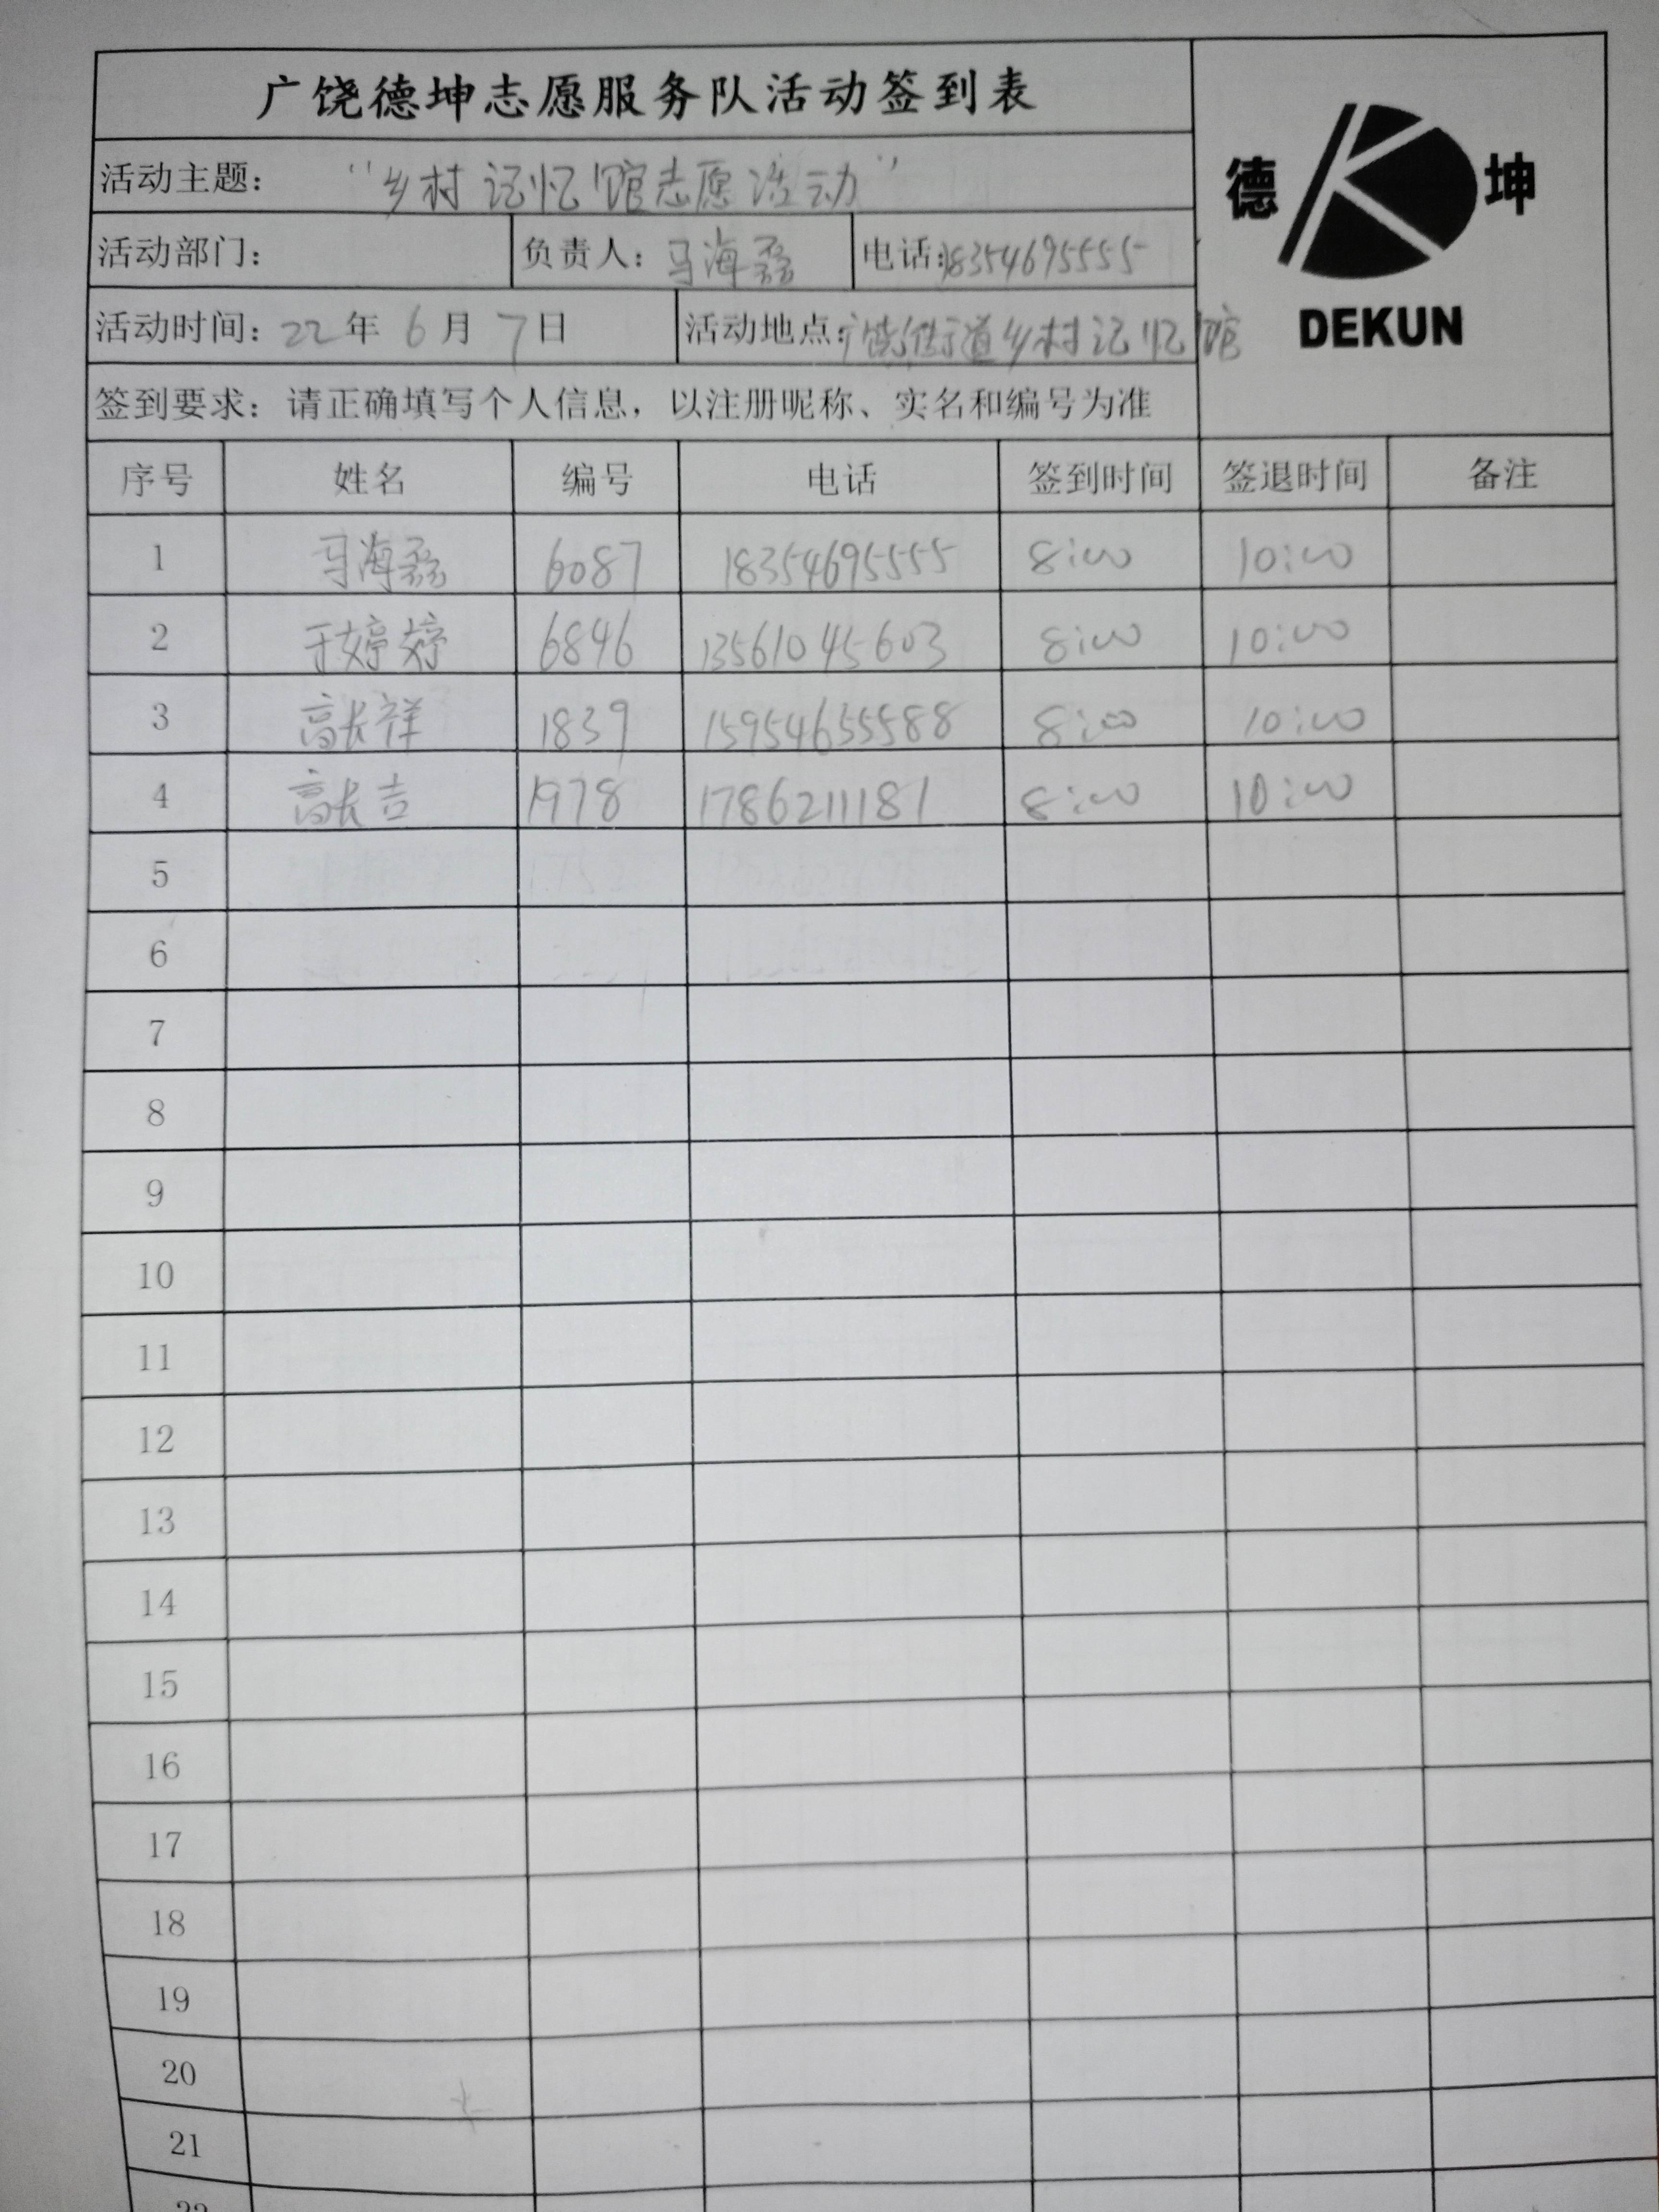 广饶德坤志愿服务队活动签到表
德 坤
DEKUN
活动主题： “乡村记忆馆志愿活动”
活动部门： 负责人：马海磊 电话：18354695555
活动时间：22年6月7日 活动地点：广饶街道乡村记忆馆
签到要求：请正确填写个人信息，以注册昵称、实名和编号为准
序号 姓名 编号 电话 签到时间 签退时间 备注
1 马海磊 6087 18354695555 8:00 10:00
2 于婷婷 6846 13561045603 8:00 10:00
3 高长祥 1839 15954655588 8:00 10:00
4 高长吉 1978 1786211181 8:00 10:00
5
6
7
8
9
10
11
12
13
14
15
16
17
18
19
20
21
22